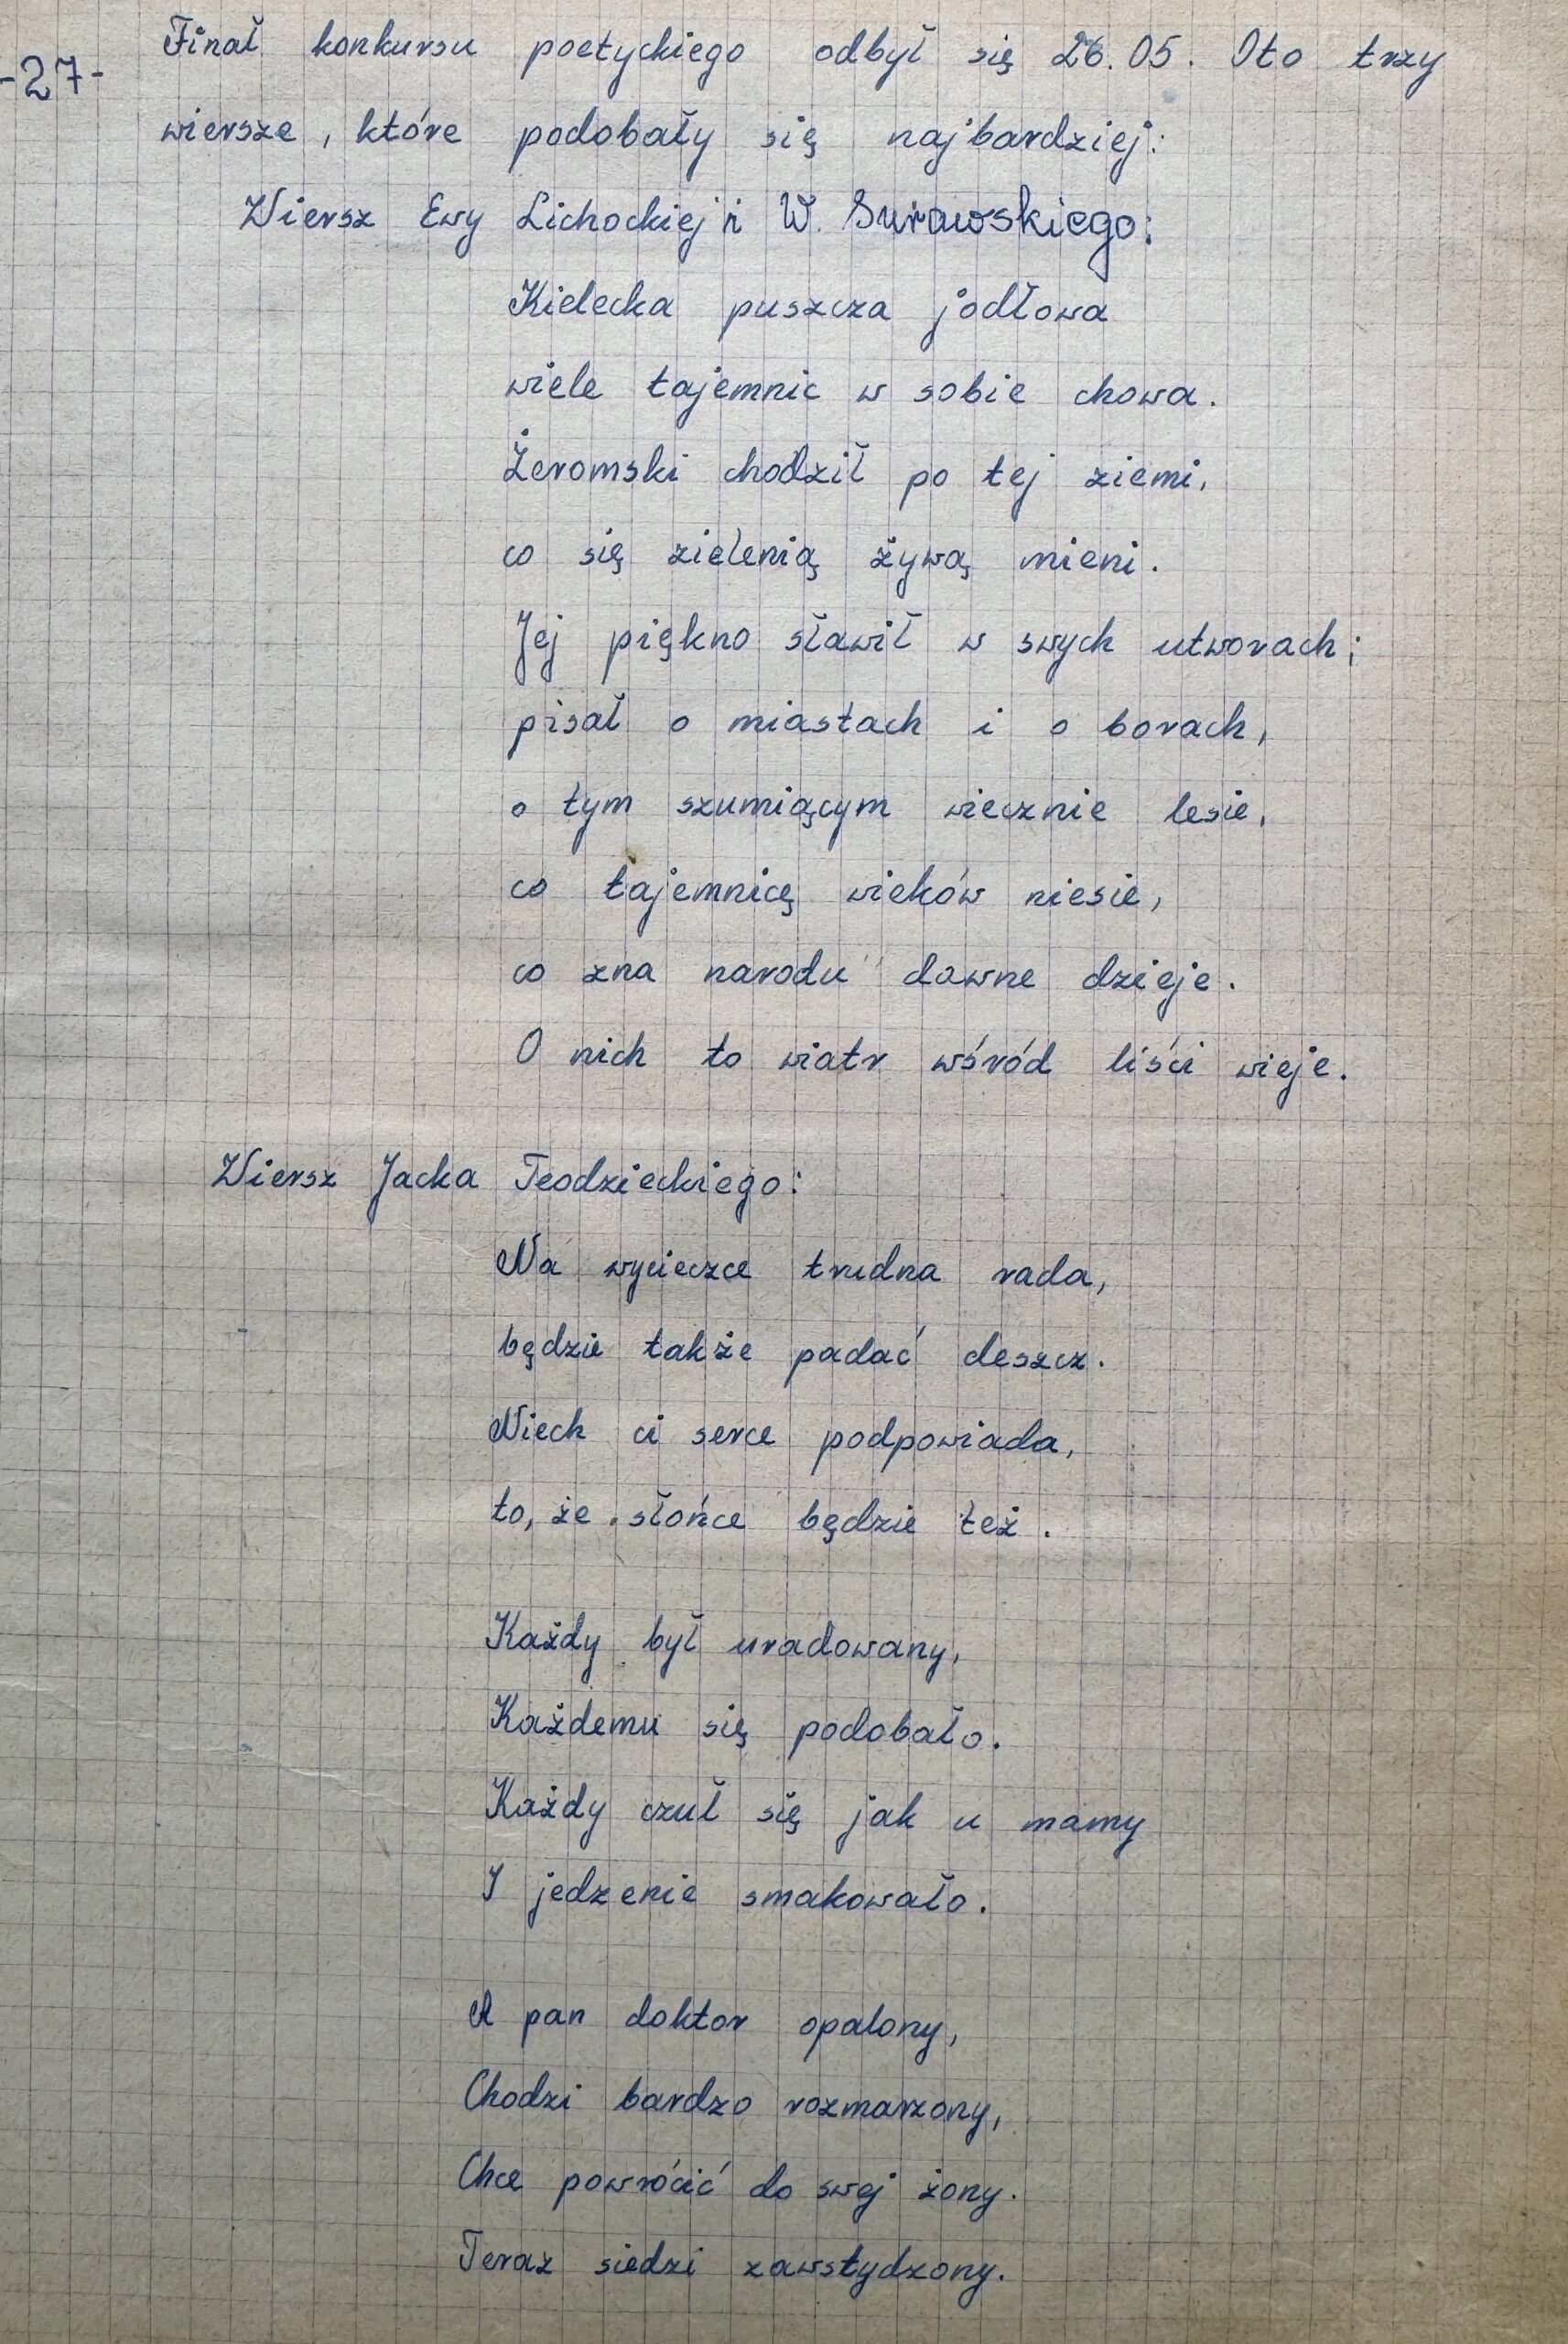 -27-
Finał konkursu poetyckiego odbył się 26.05. Oto trzy
wiersze, które podobały się najbardziej:
Wiersz Ewy Lichockiej i W. Surowskiego:
Kielecka puszcza jodłowa
wiele tajemnic w sobie chowa.
Żeromski chodził po tej ziemi,
co się zielenią żywą mieni.
Jej piękno sławił w swych utworach;
pisał o miastach i o borach,
o tym szumiącym wiecznie lesie,
co tajemnicę wieków niesie,
co zna narodu dawne dzieje.
O nich to wiatr wśród liści wieje.
Wiersz Jacka Teodzieckiego:
Na wycieczce trudna rada,
będzie także padać deszcz.
Niech ci serce podpowiada,
to, że słońce będzie też.
Każdy był uradowany,
Każdemu się podobało.
Każdy czuł się jak u mamy
I jedzenie smakowało.
A pan doktor opalony,
Chodzi bardzo rozmarzony,
Chce powrócić do swej żony.
Teraz siedzi zawstydzony.